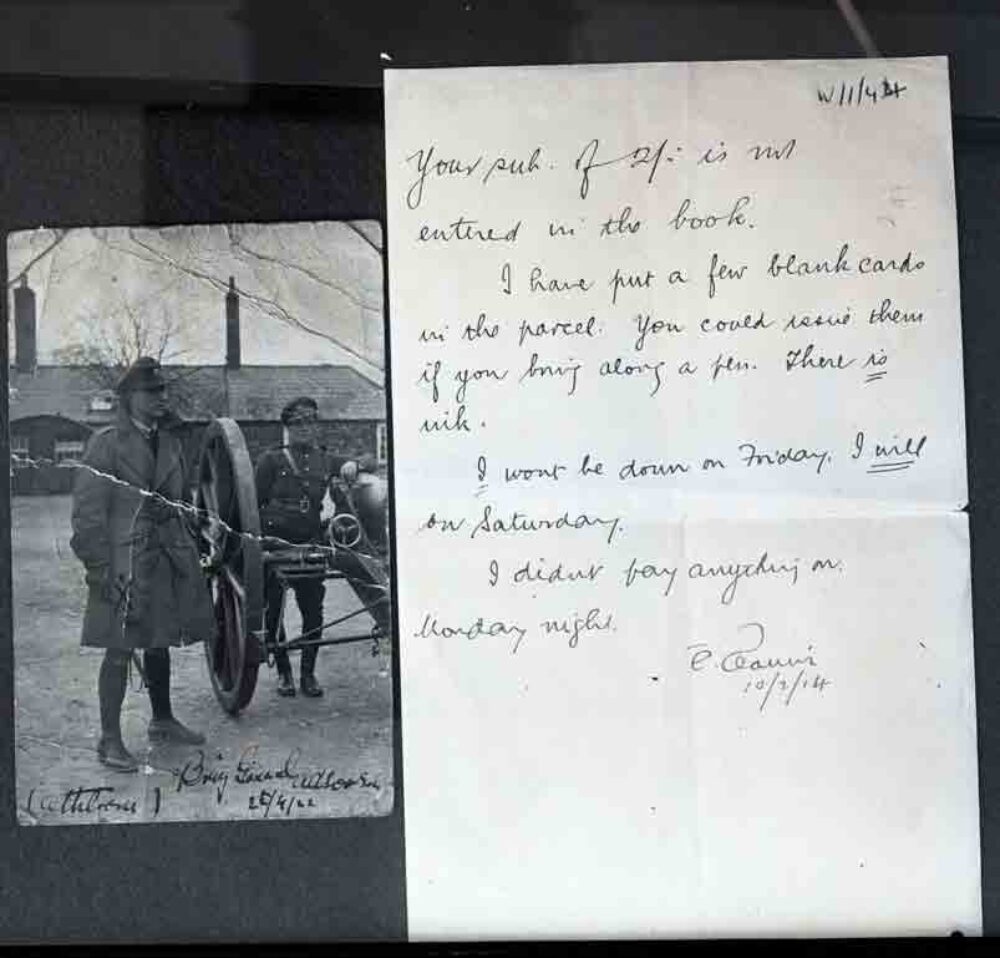 W11/4
Your sub. of 2/: is not
entered in the book.
I have put a few blank cards
in the parcel. You could issue them
if you bring along a pen. There is
ink.
I wont be down on Friday. I will
on Saturday.
I didnt pay anything on.
Monday night.
E.
10/2/14
Brig